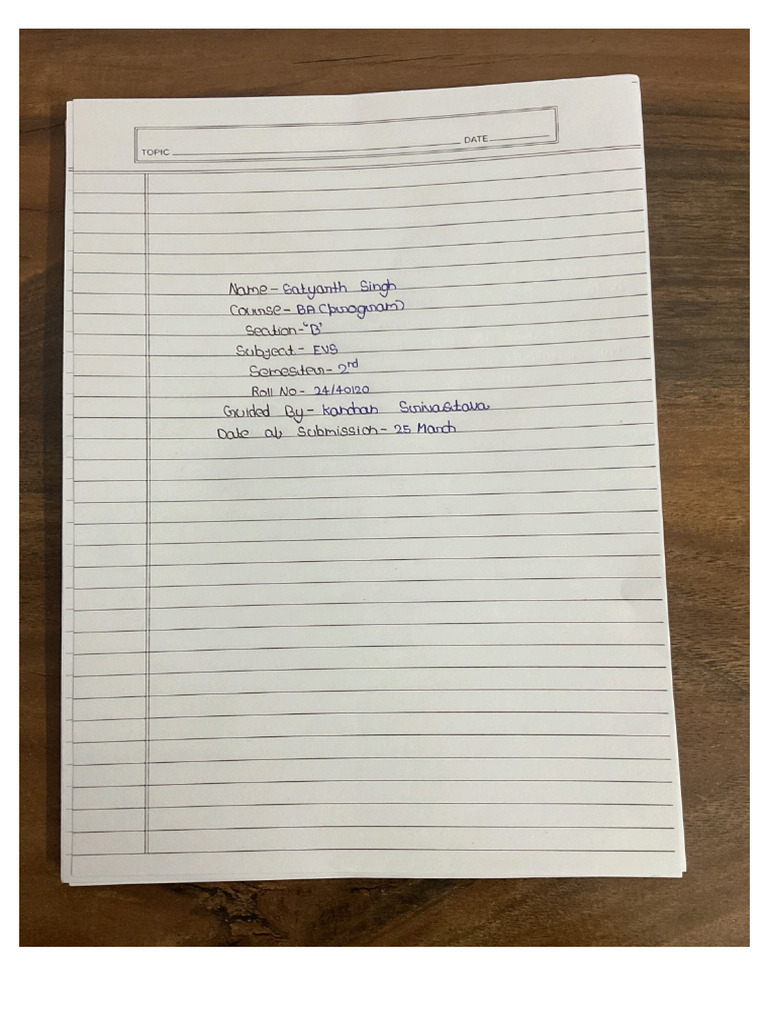 TOPIC DATE
Name - Satyanth Singh
Course - BA (program)
Section - "B"
Subject - EVS
Semester - 2nd
Roll No - 24/40120
Guided By - Kanchan Srivastava
Date of Submission - 25 March